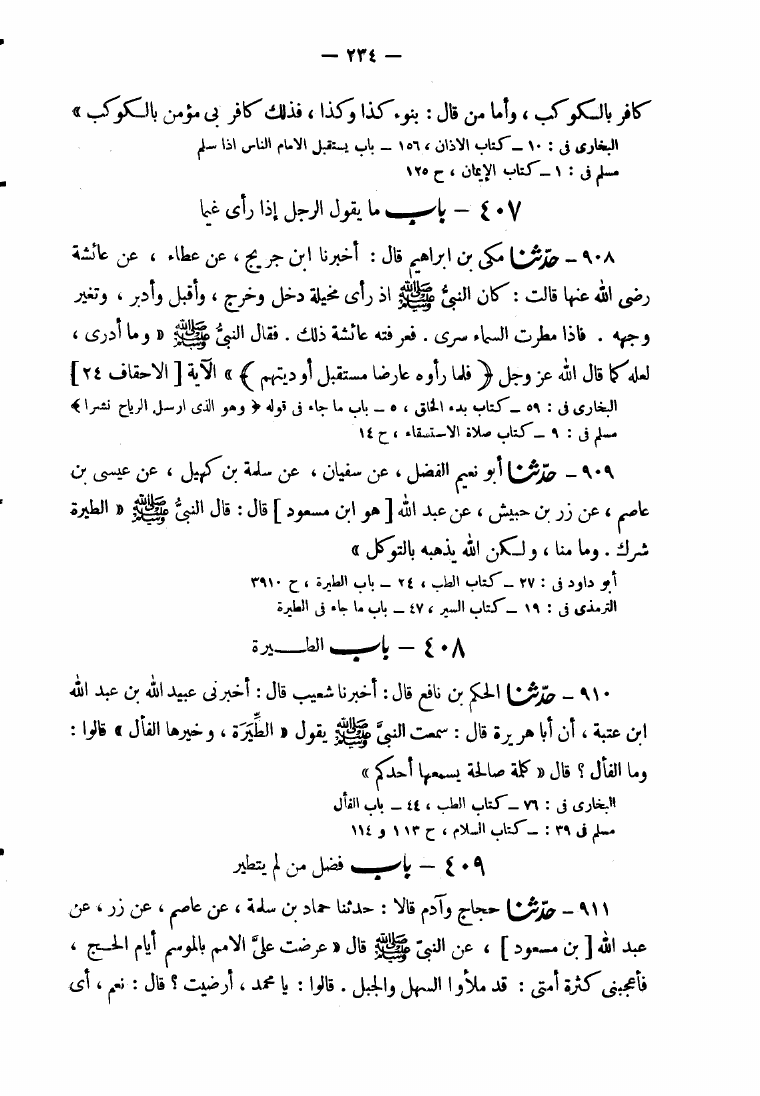 — ٢٣٤ —
كافر بالكوكب ، وأما من قال : بنوء كذا وكذا ، فذلك كافر بى مؤمن بالكوكب »
البخارى فى : ١٠ – كتاب الاذان ، ١٥٦ – باب يستقبل الامام الناس اذا سلم
مسلم فى : ١ – كتاب الإيمان ، ح ١٢٥
٤٠٧ – باب ما يقول الرجل إذا رأى غيما
٩٠٨ – حدثنا مكى بن ابراهيم قال : أخبرنا ابن جريج ، عن عطاء ، عن عائشة
رضى الله عنها قالت : كان النبىُّ ﷺ اذ رأى مخيلة دخل وخرج ، وأقبل وأدبر ، وتغير
وجهه . فاذا مطرت السماء سرى . فعرفته عائشة ذلك . فقال النبىُّ ﷺ « وما أدرى ،
لعله كما قال الله عز وجل ﴿ فلما رأوه عارضا مستقبل أوديتهم ﴾ » الآية [ الاحقاف ٢٤ ]
البخارى فى : ٥٩ – كتاب بدء الخلق ، ٥ – باب ما جاء فى قوله ﴿ وهو الذى ارسل الرياح نشرا ﴾
مسلم فى : ٩ – كتاب صلاة الاستسقاء ، ح ١٤
٩٠٩ – حدثنا أبو نعيم الفضل ، عن سفيان ، عن سلمة بن كهيل ، عن عيسى بن
عاصم ، عن زر بن حبيش ، عن عبد الله [ هو ابن مسعود ] قال : قال النبىُّ ﷺ « الطيرة
شرك . وما منا ، ولكن الله يذهبه بالتوكل »
أبو داود فى : ٢٧ – كتاب الطب ، ٢٤ – باب الطيرة ، ح ٣٩١٠
الترمذى فى : ١٩ – كتاب السير ، ٤٧ – باب ما جاء فى الطيرة
٤٠٨ – باب الطـيرة
٩١٠ – حدثنا الحكم بن نافع قال : أخبرنا شعيب قال : أخبرنى عبيد الله بن عبد الله
ابن عتبة ، أن أبا هريرة قال : سمعت النبىَّ ﷺ يقول « الطِّيَرَة ، وخيرها الفأل » قالوا :
وما الفأل ؟ قال « كلمة صالحة يسمعها أحدكم »
البخارى فى : ٧٦ – كتاب الطب ، ٤٤ – باب الفأل
مسلم فى ٣٩ : – كتاب السلام ، ح ١١٣ و ١١٤
٤٠٩ – باب فضل من لم يتطير
٩١١ – حدثنا حجاج وآدم قالا : حدثنا حماد بن سلمة ، عن عاصم ، عن زر ، عن
عبد الله [ بن مسعود ] ، عن النبىّ ﷺ قال « عرضت علىَّ الامم بالموسم أيام الحج ،
فأعجبنى كثرة أمتى : قد ملأوا السهل والجبل . قالوا : يا محمد ، أرضيت ؟ قال : نعم ، أى